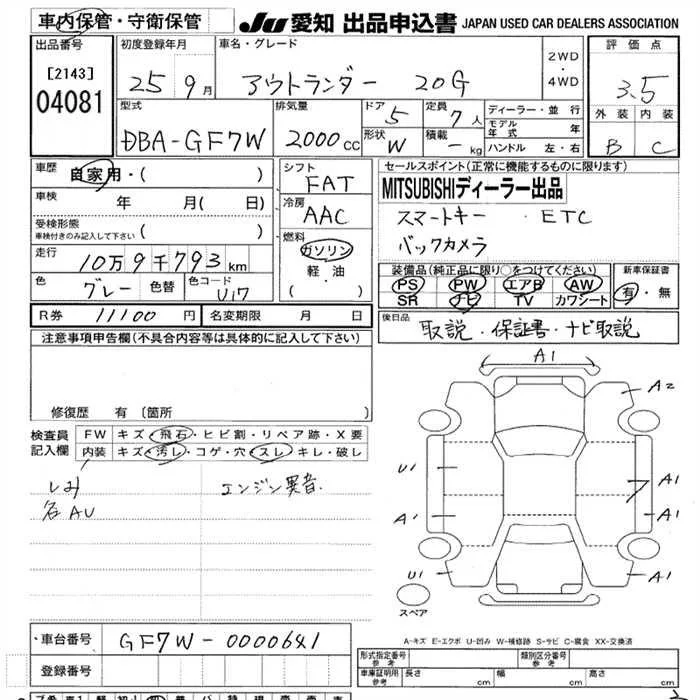 車内保管・守衛保管
JU 愛知 出品申込書 JAPAN USED CAR DEALERS ASSOCIATION
出品番号 初度登録年月 車名・グレード 2WD・4WD 評価点
[2143] 04081 25 9月 アウトランダー 20G 3.5
型式 排気量 ドア 5 定員 7人 ディーラー・並行 外装 内装
DBA-GF7W 2000cc 形状 W 積載 - kg モデル年式 年 B C
ハンドル 左・右
車歴 自家用・( )
シフト FAT
セールスポイント(正常に機能するものに限ります)
車検 年 月( 日)
冷房 AAC
MITSUBISHIディーラー出品
受検形態 ( )
車検付きのみ記入して下さい
スマートキー ETC
走行 10万9千793km
燃料 ガソリン
バックカメラ
軽油
・( )・
装備品(純正品に限り○をつけてください) 新車保証書
色 グレー 色替 色コード U17
PS PW エアB AW 有・無
SR ナビ TV カワシート
R券 11100円 名変期限 月 日
後日品 取説・保証書・ナビ取説
注意事項申告欄(不具合内容等は具体的に記入して下さい)
修復歴 有(箇所
検査員記入欄 FW キズ・飛石・ヒビ割・リペア跡・X要
内装 キズ・汚レ・コゲ・穴・スレ・キレ・破レ
しみ エンジン異音
各AU
A1
A2
U1 A1
A1 A1
U1 A1
スペア
A-キズ E-エクボ U-凹み W-補修跡 S-サビ C-腐食 XX-交換済
・車台番号 GF7W-0000641
登録番号
形式指定番号 参考 類別区分番号 参考
車庫証明用 参考 長さ cm 幅 cm 高さ cm